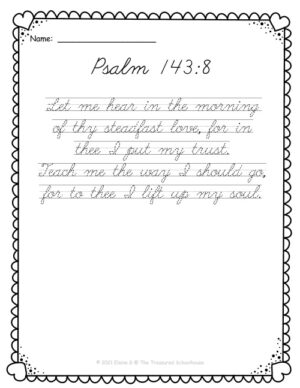 Name:
Psalm 143:8
Let me hear in the morning
of thy steadfast love, for in
thee I put my trust.
Teach me the way I should go,
for to thee I lift up my soul.
© 2021 Elaine S @ The Treasured Schoolhouse